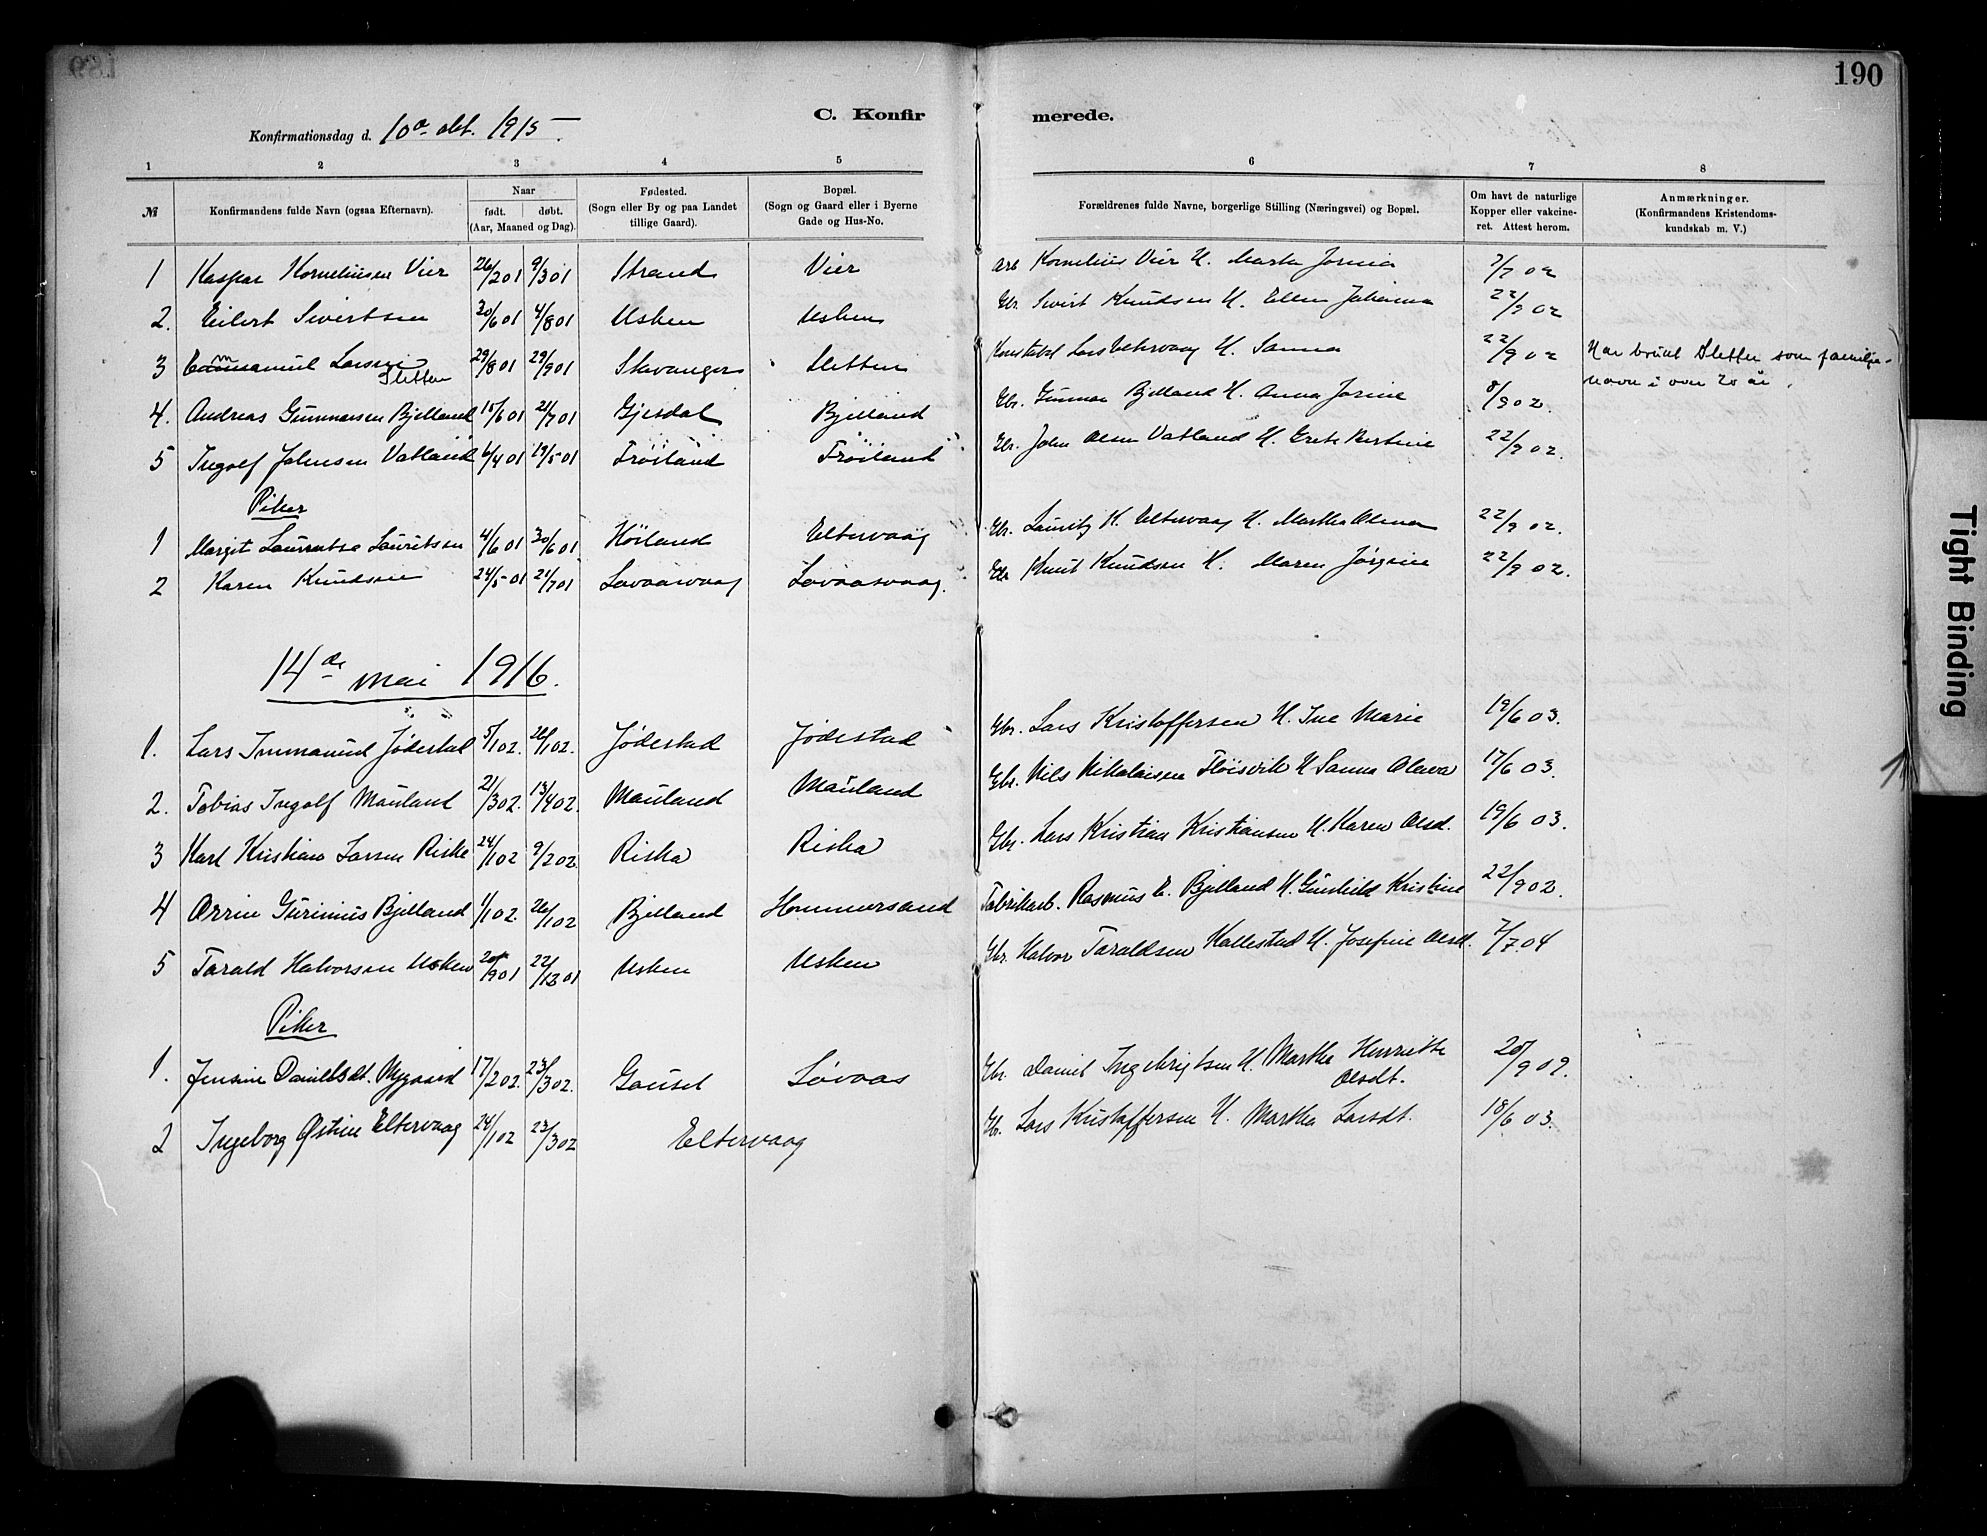 189
190
C. Konfirmerede.
Konfirmationsdag d. 10de okt. 1915.
1 2 3 4 5 6 7 8
№
Konfirmandens fulde Navn (ogsaa Efternavn).
Naar
født. døbt.
(Aar, Maaned og Dag).
Fødested.
(Sogn eller By og paa Landet
tillige Gaard).
Bopæl.
(Sogn og Gaard eller i Byerne
Gade og Hus-No.
Forældrenes fulde Navne, borgerlige Stilling (Næringsvei) og Bopæl.
Om havt de naturlige
Kopper eller vakcine-
ret. Attest herom.
Anmærkninger.
(Konfirmandens Kristendoms-
kundskab m. V.)
1 Kaspar Korneliusen Vier 26/2 01 9/3 01 Strand Vier arb Kornelius Vier H. Marta Josina 7/7 02
2. Eilert Sivertsen 30/6 01 4/8 01 Usken Usken Gbr. Sivert Knudsen H. Ellen Johanna 22/9 02
3 Emmanuel Larsen Sletten 29/8 01 29/9 01 Stavanger Sletten Lars H. Sanna 22/9 02 Har brukt Sletten som familje-
navn i over 20 år.
4. Andreas Gunnarsen Bjelland 15/6 01 21/7 01 Gjesdal Bjelland Gbr. Gunnar Bjelland H. Anna Josine 8/9 02.
5 Ingolf Johnsen Vatland 6/4 01 19/5 01 Fröiland Fröiland Gbr. John Olsen Vatland H. Grete Bertine 22/9 02.
Piker
1 Margit Lauritsen 4/6 01 30/6 01 Höiland Eltervaag Gbr. Lauritz K. Eltervaag H. Martha Olena 22/9 02.
2 Karen Knudsen 24/5 01 21/7 01 Lovaasvaag Lovaasvaag. Gbr Knut Knudsen H. Maren Jørgine 22/9 02.
14de mai 1916.
1. Lars Immanuel Jødestad 5/1 02. 26/1 02. Jødestad Jødestad Gbr. Lars Kristoffersen H. Ine Marie 19/6 03.
2. Tobias Ingolf Mauland 21/3 02. 13/4 02. Mauland Mauland Gbr. Nils Nikolaisen Fløisvik H Sanna Olava 17/6 03.
3 Karl Kristian Larsen Riske 24/1 02 9/2 02 Riska Riska Gbr. Lars Kristian Kristiansen H. Karen Olsd. 19/6 03.
4 Arrin Gurinius Bjelland 1/1 02. 26/1 02 Bjelland Hommersand Fabrikarb. Rasmus E. Bjelland H. Gunhild Kristine 22/9 02.
5 Tarald Halvorsen Usken 20/9 01 22/12 01 Usken Usken Gbr. Halvor Taraldsen Hallestad H. Josefine Olsd. 7/7 04
Piker
1. Jensine Danielsdt. Nygaard 17/2 02. 23/3 02. Gausel Løvaas Gbr. Daniel Ingebrigtsen H. Martha Henriette
Olsdt. 20/9 09.
2 Ingeborg Østine Eltervaag 24/1 02 23/3 02 Eltervaag Gb. Lars Kristoffersen H. Martha Larsdt. 18/6 03.
Tight Binding